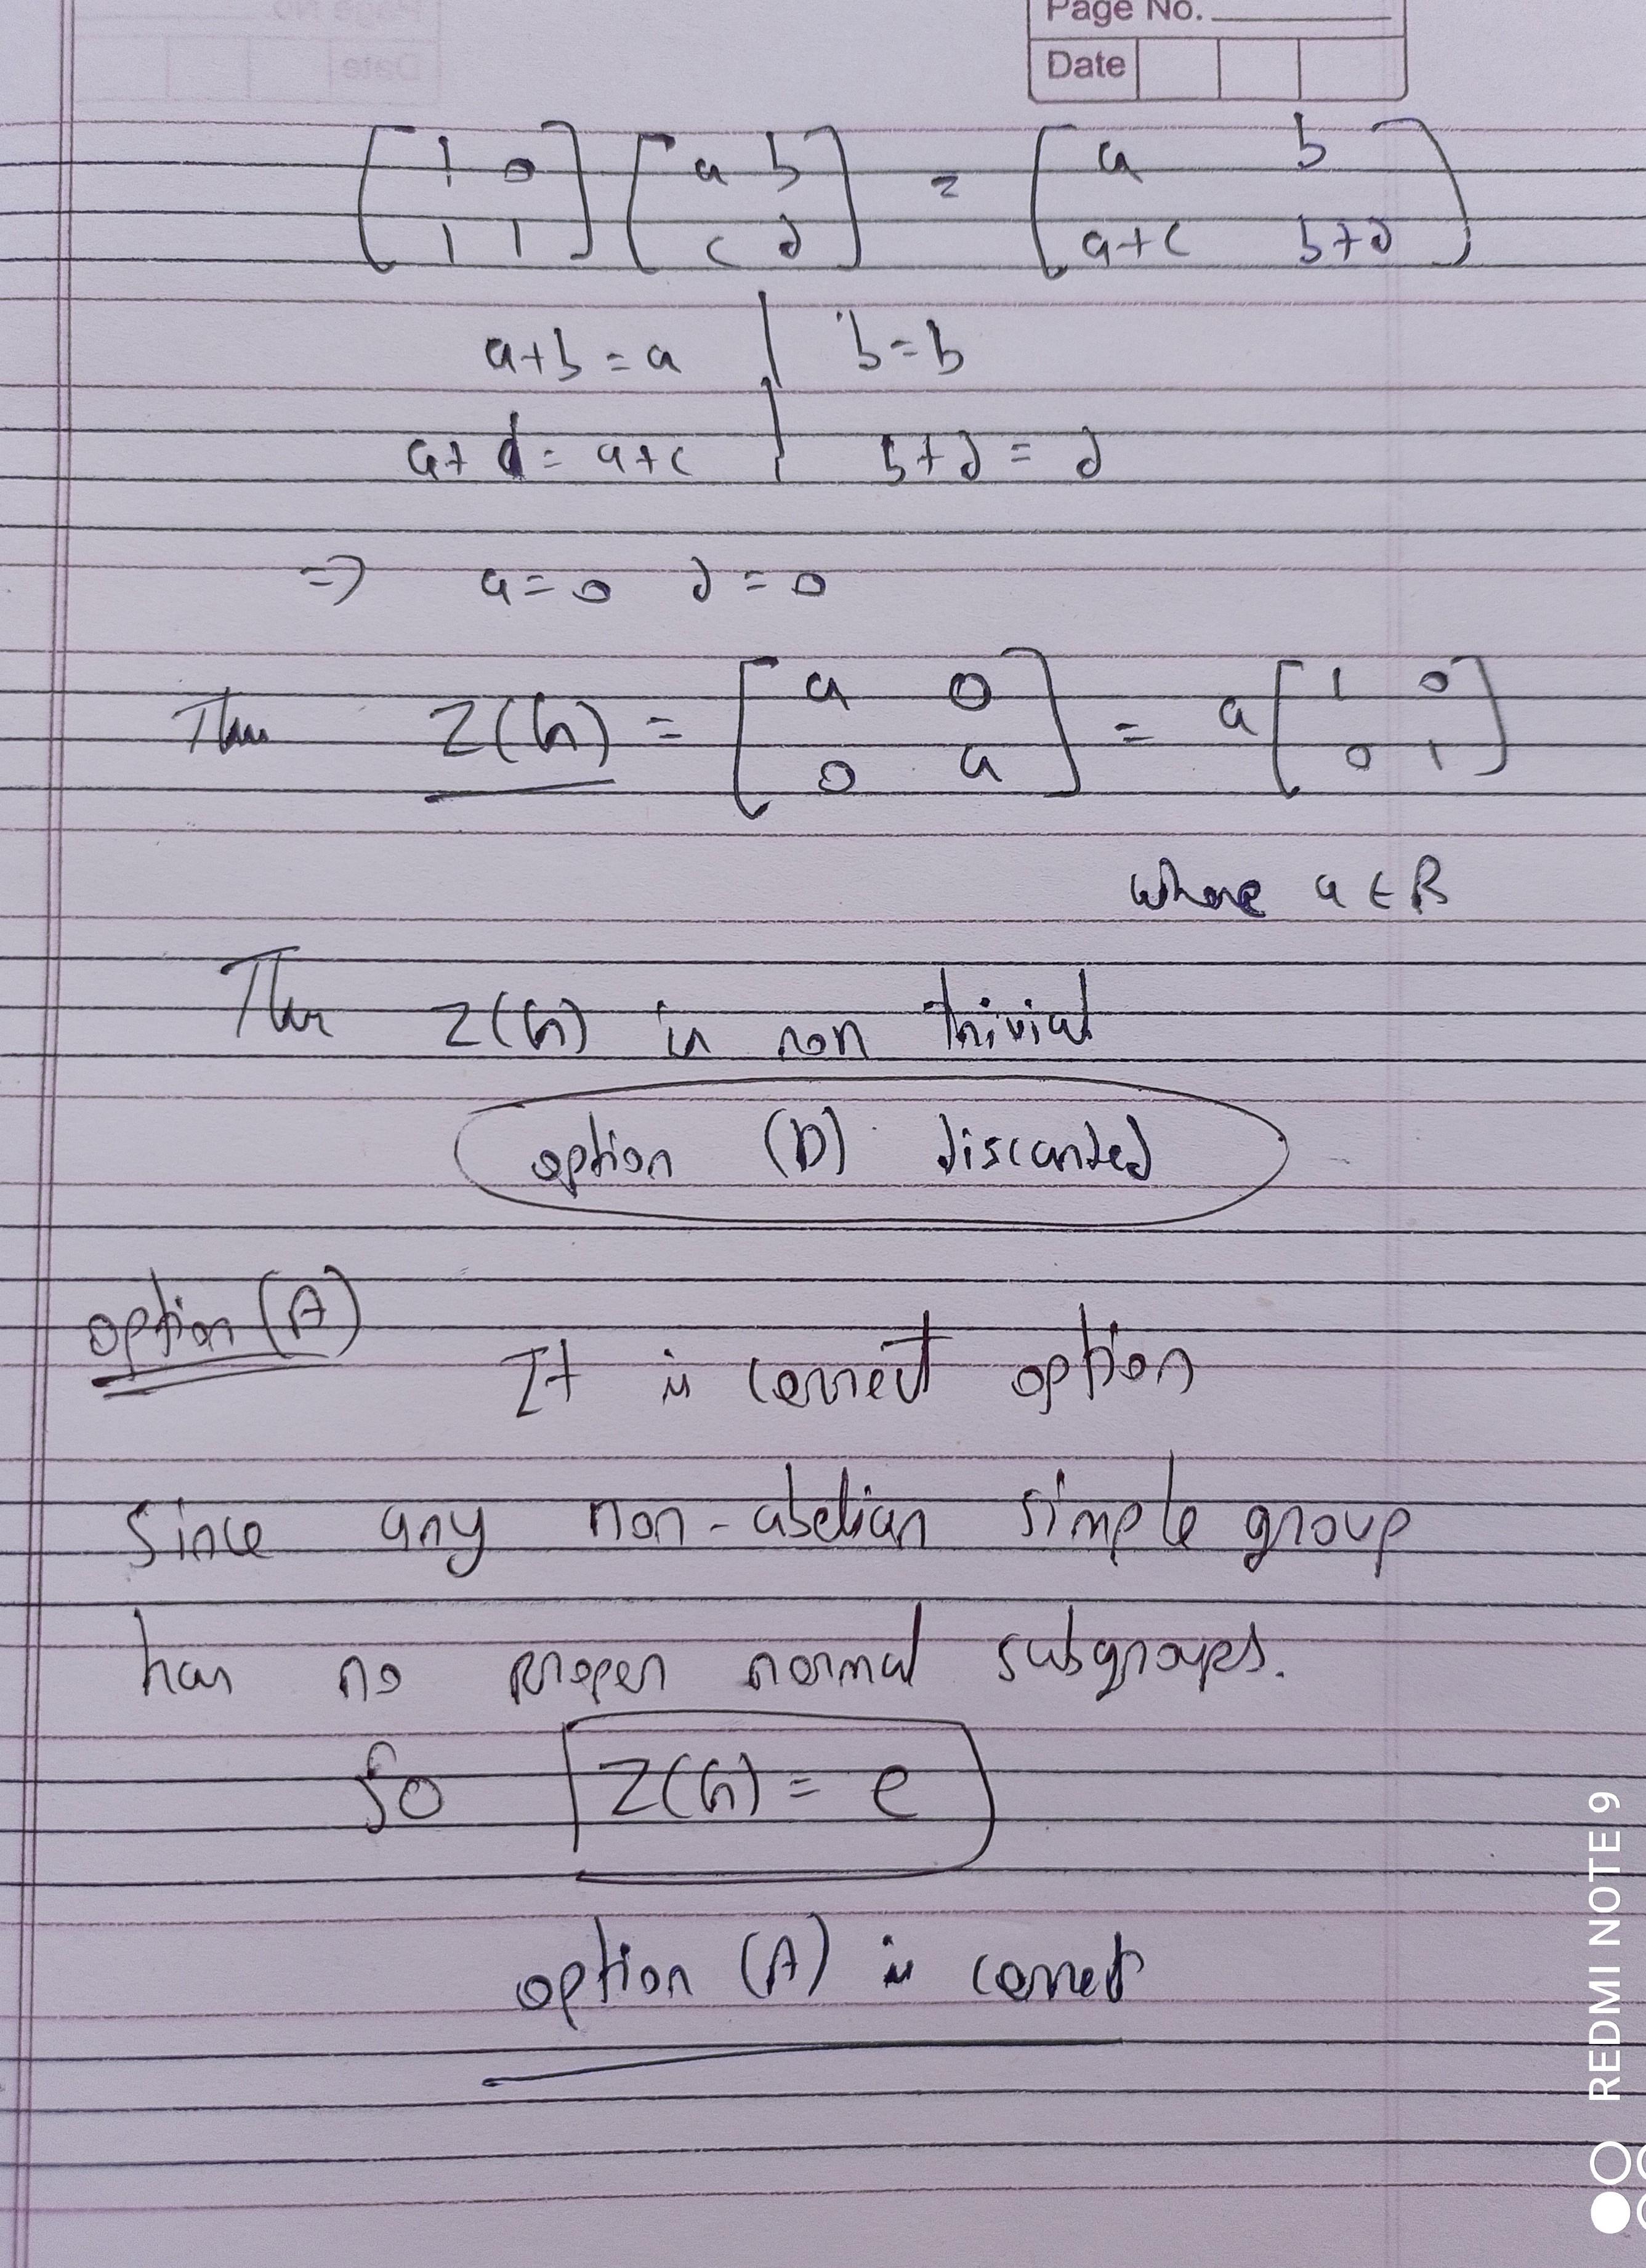 Page No.
Date
[1 0; 1 1] [a b; c d] = [a b; a+c b+d]
a+b = a | b = b
a+d = a+c | b+d = d
=> a = 0 d = 0
Thus Z(G) = [a 0; 0 a] = a [1 0; 0 1]
where a ∈ R
Thus Z(G) is non trivial
option (D) discarded
option (A)
It is correct option
Since any non-abelian simple group
has no proper normal subgroups.
So Z(G) = e
option (A) is correct
REDMI NOTE 9